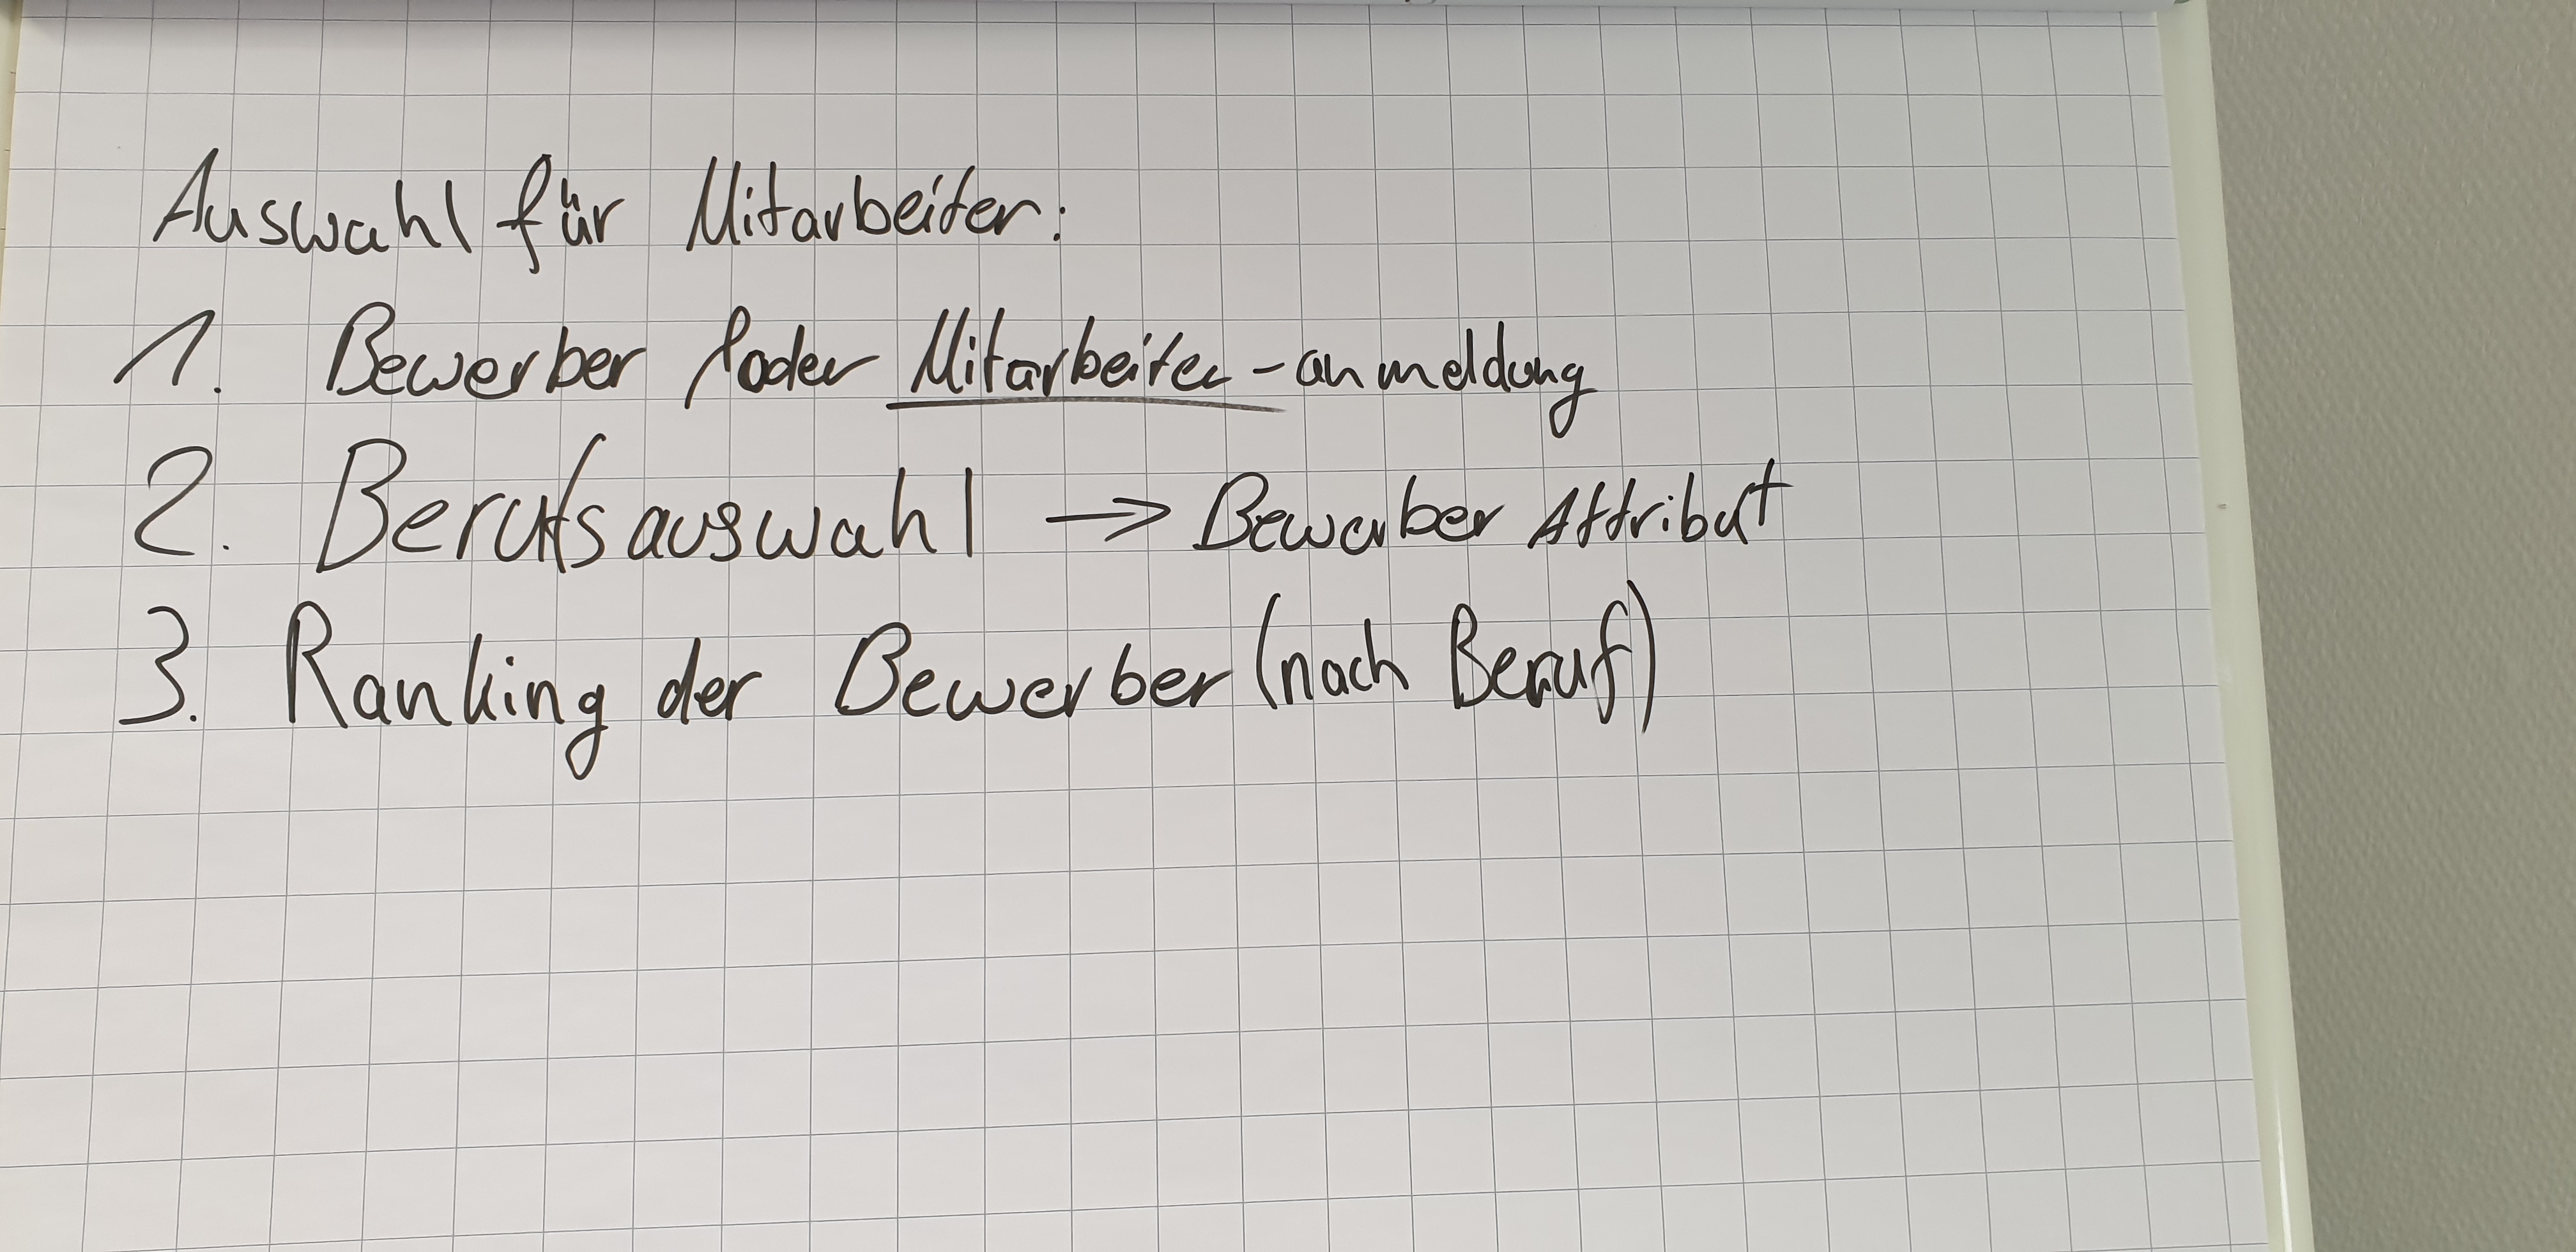 Auswahl für Mitarbeiter:
1. Bewerber /oder Mitarbeiter-anmeldung
2. Berufsauswahl → Bewerber Attribut
3. Ranking der Bewerber (nach Beruf)